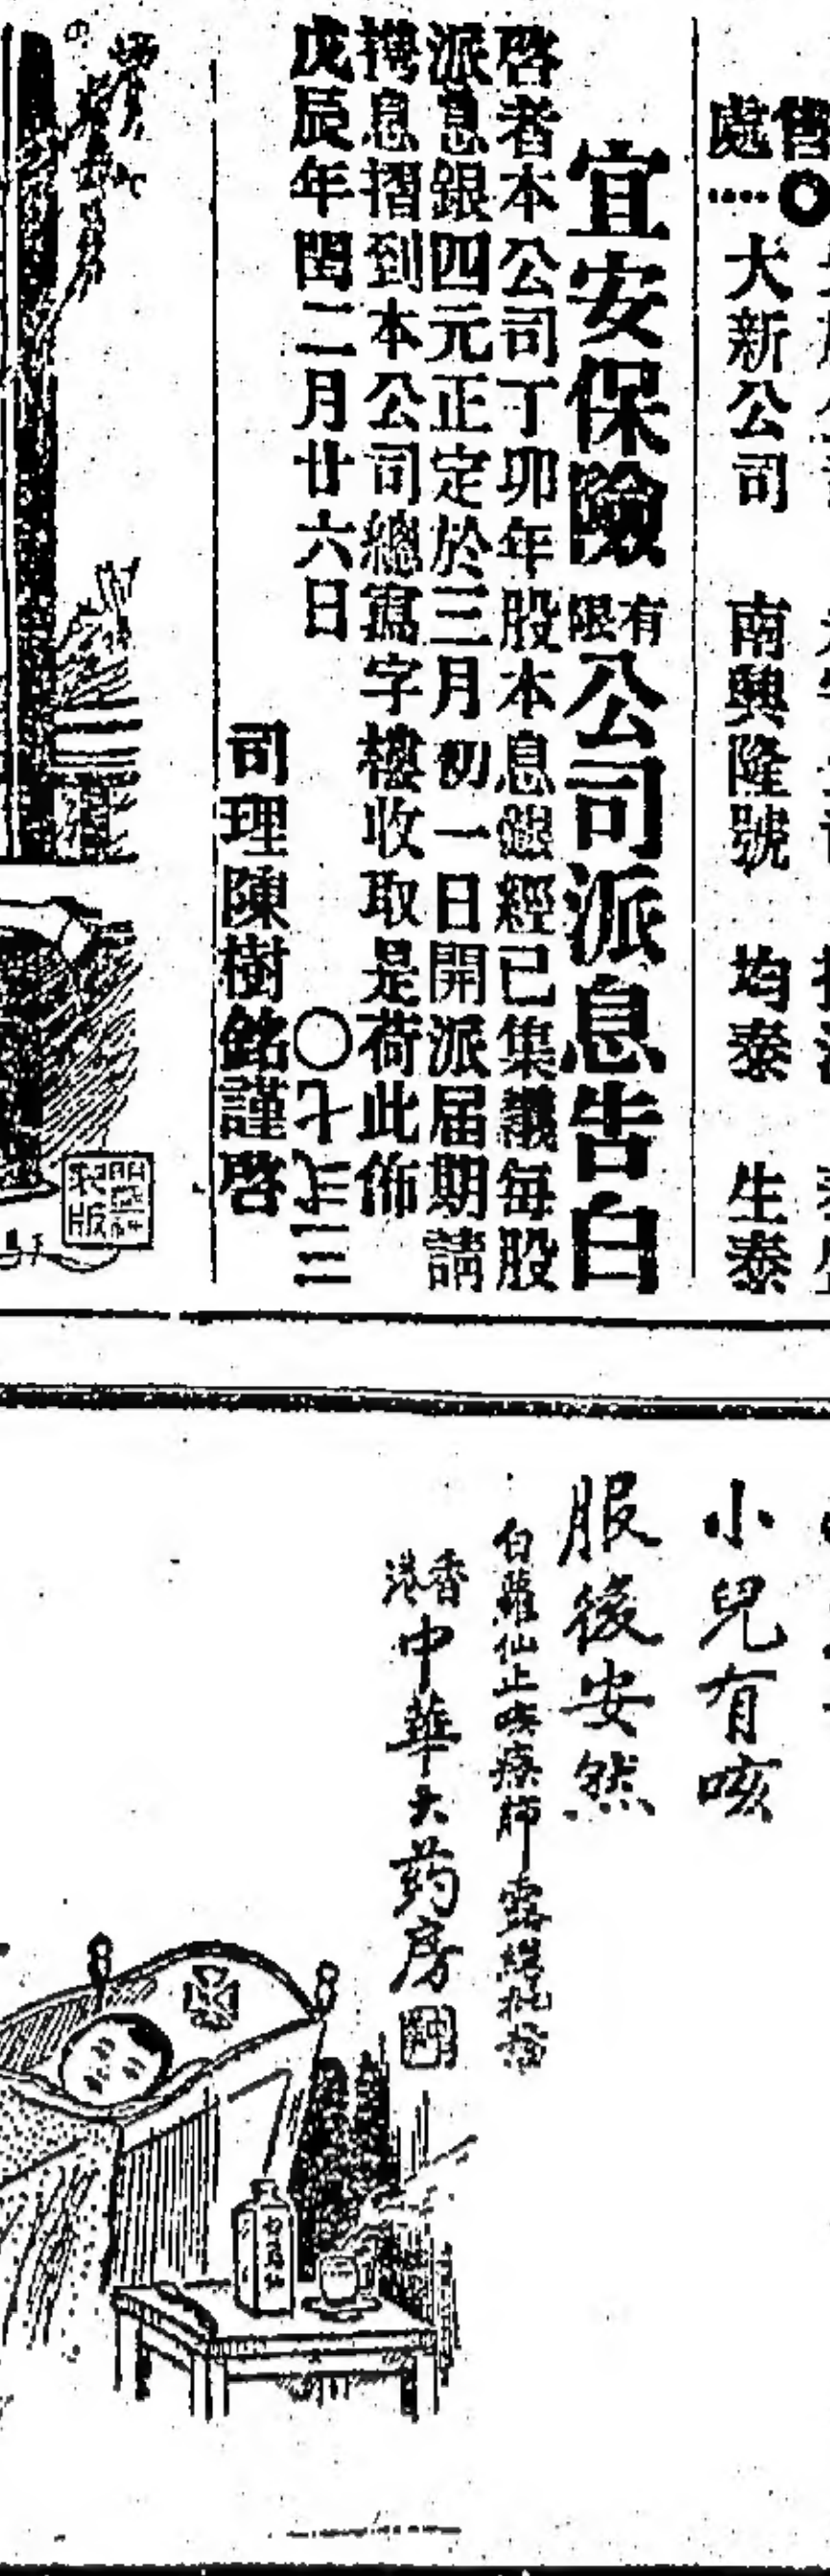 售
處
大新公司 南興隆號 均泰 生泰
宜安保險有限公司派息告白
啓者本公司丁卯年股本息銀經已集議每股
派息銀四元正定於三月初一日開派届期請
携息摺到本公司總寫字樓收取是荷此佈
戊辰年閏二月廿六日
司理陳樹銘謹啓
製版
小兒有咳
服後安然
白蘿仙止咳療肺露
香港中華大药房